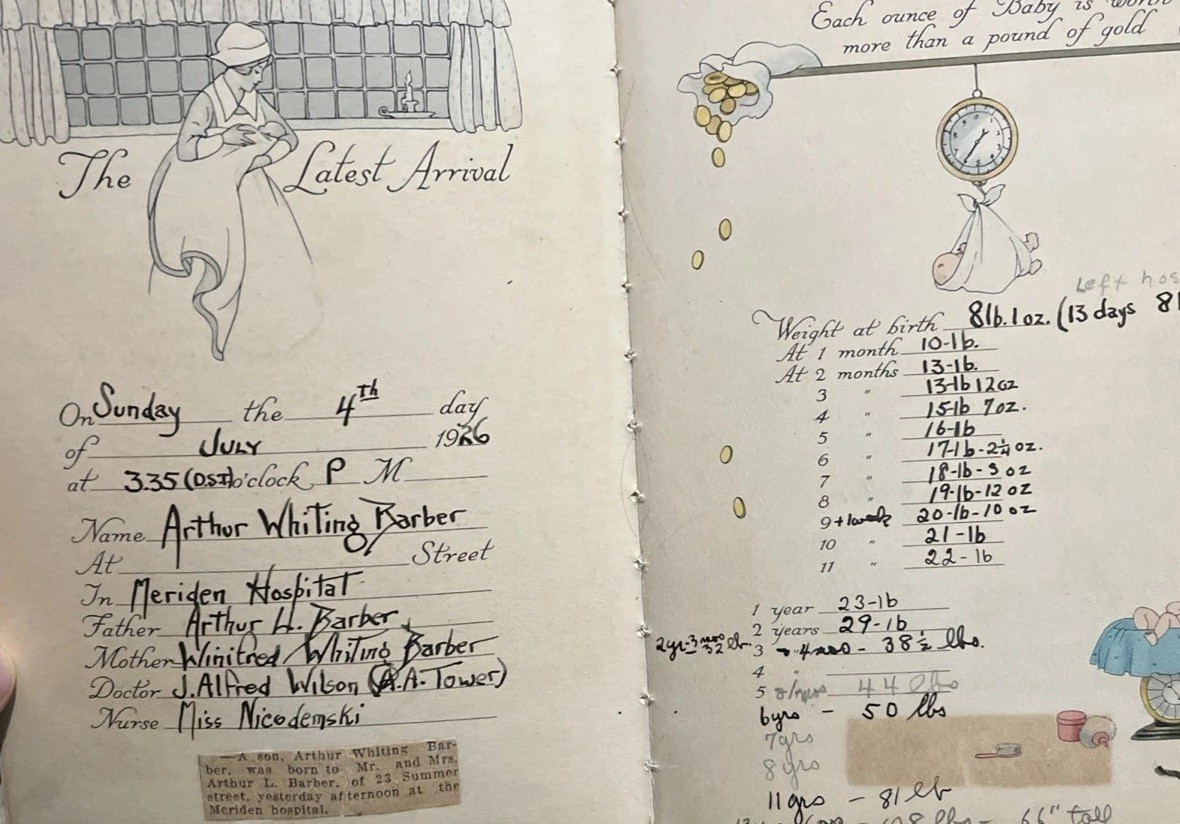 The Latest Arrival
On Sunday the 4th day
of JULY 1926
at 3.35 (D.S.T.) o'clock P M
Name Arthur Whiting Barber
At Street
In Meriden Hospital
Father Arthur L. Barber
Mother Winifred Whiting Barber
Doctor J. Alfred Wilson (A.A. Tower)
Nurse Miss Nicodemski
—A son, Arthur Whiting Bar-
ber, was born to Mr. and Mrs.
Arthur L. Barber, of 23 Summer
street, yesterday afternoon at the
Meriden hospital.
Each ounce of Baby is worth
more than a pound of gold
Left hos
Weight at birth 8 lb. 1 oz. (13 days 8 l
At 1 month 10-lb.
At 2 months 13-lb.
3 " 13-lb 12oz
4 " 15-lb 7oz.
5 " 16-lb
6 " 17-lb-2¼ oz.
7 " 18-lb-3 oz
8 " 19-lb-12 oz
9 + 1 week 20-lb-10 oz
10 " 21-lb
11 " 22-lb
1 year 23-lb
2 years 29-lb
2yr-3mos 32 lb. 3 4mos - 38½ lbs.
4 "
5 44 lbs
6yrs - 50 lbs
7yrs
8yrs
11yrs - 81 lb
lbs - 66" tall